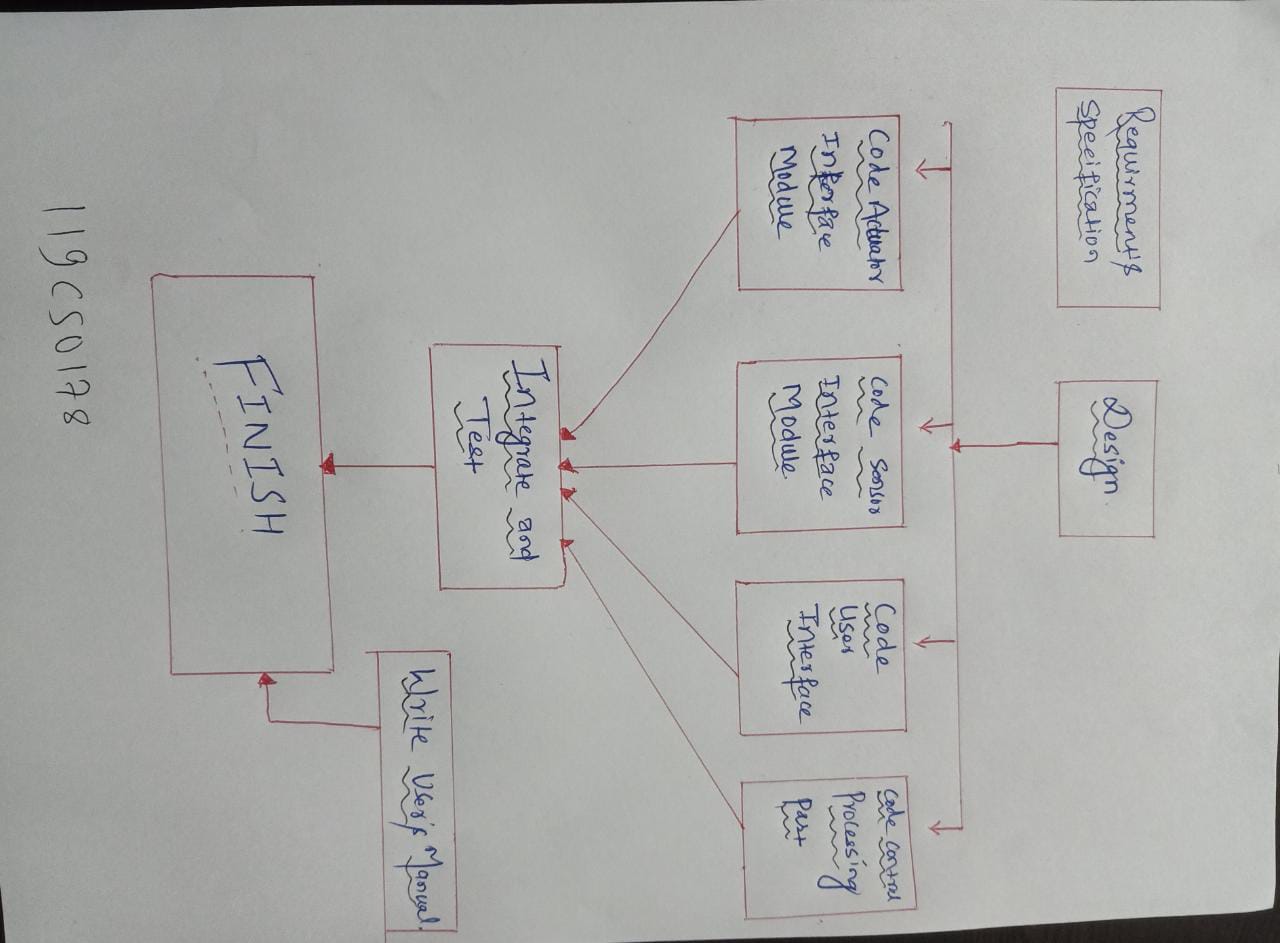 Requirment's
Specification
Design.
Code Actuator
Interface
Module
Code Sensor
Interface
Module.
Code
User
Interface
Code Control
Processing
Part
Integrate and
Test
Write User's Manual.
FINISH
119CS0178